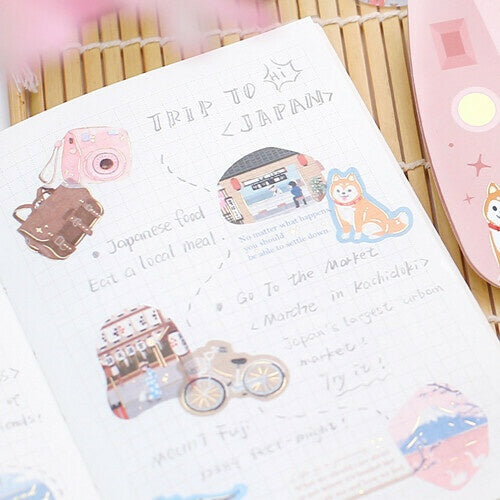 TRIP TO
Hi
<JAPAN>
• Japanese food
Eat a local meal.
No matter what happens,
you should
be able to settle down.
• Go To the Market
<Marche in Kachidoki>
Japan's largest urban
market!
Try it!
Mount Fuji
feet-might!